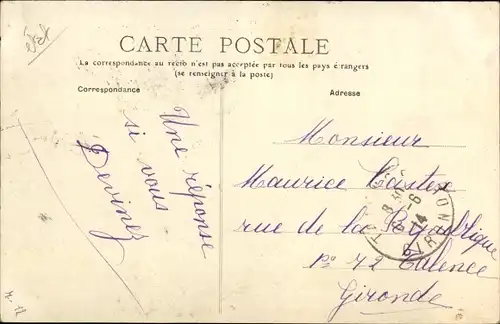 CARTE POSTALE
La correspondance au recto n'est pas acceptée par tous les pays étrangers
(se renseigner à la poste)
Correspondance
Adresse
Une réponse
si vous
Devinez
Monsieur
Maurice Castex
rue de la République
no 72 Talence
Gironde
GIRONDE